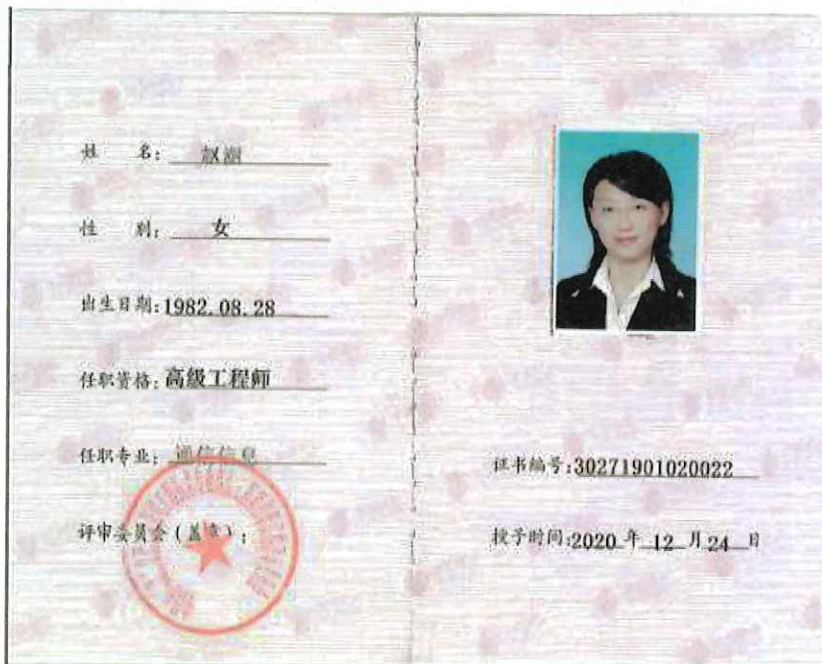 姓 名: 赵
性 别: 女
出生日期:1982.08.28
任职资格: 高级工程师
任职专业: 通信信息
评审委员会(盖章):
证书编号:30271901020022
授予时间:2020 年 12 月 24 日